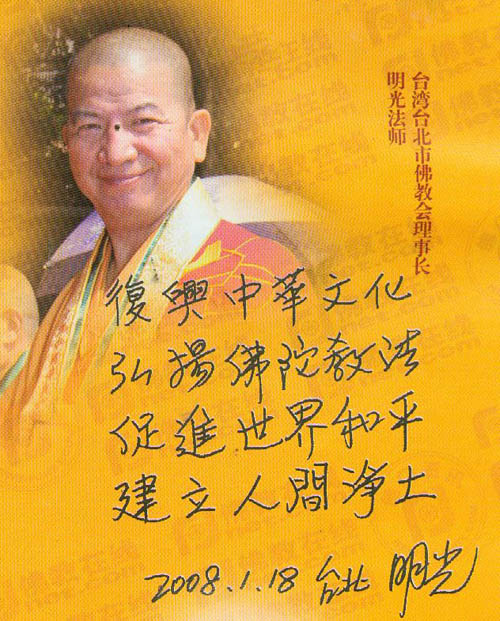 台湾台北市佛教会理事长
明光法师
復興中華文化
弘揚佛陀教法
促進世界和平
建立人間淨土
2008.1.18 台北 明光